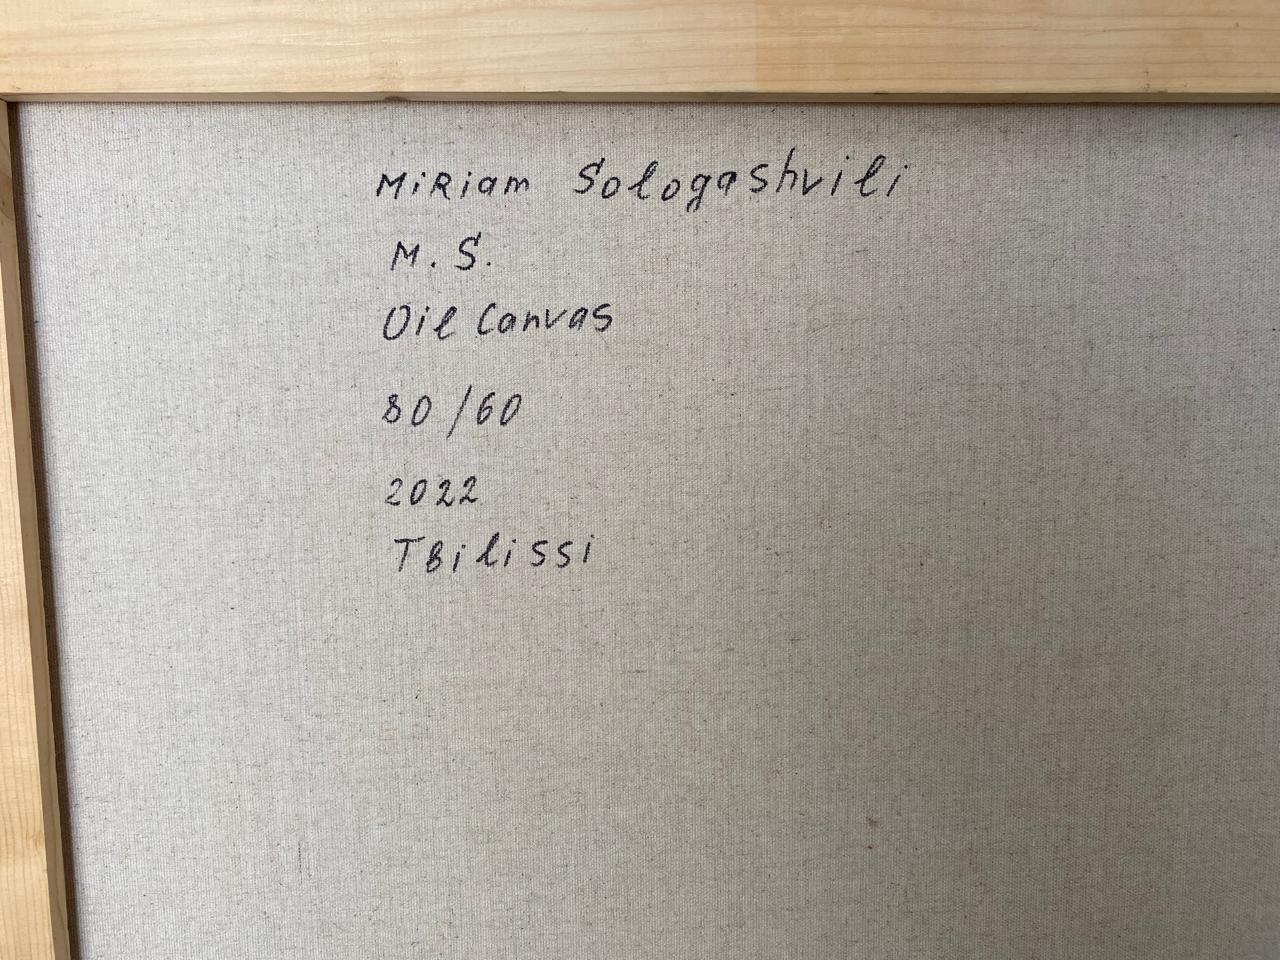 Miriam Sologashvili
M. S.
Oil Canvas
80 / 60
2022
Tbilissi